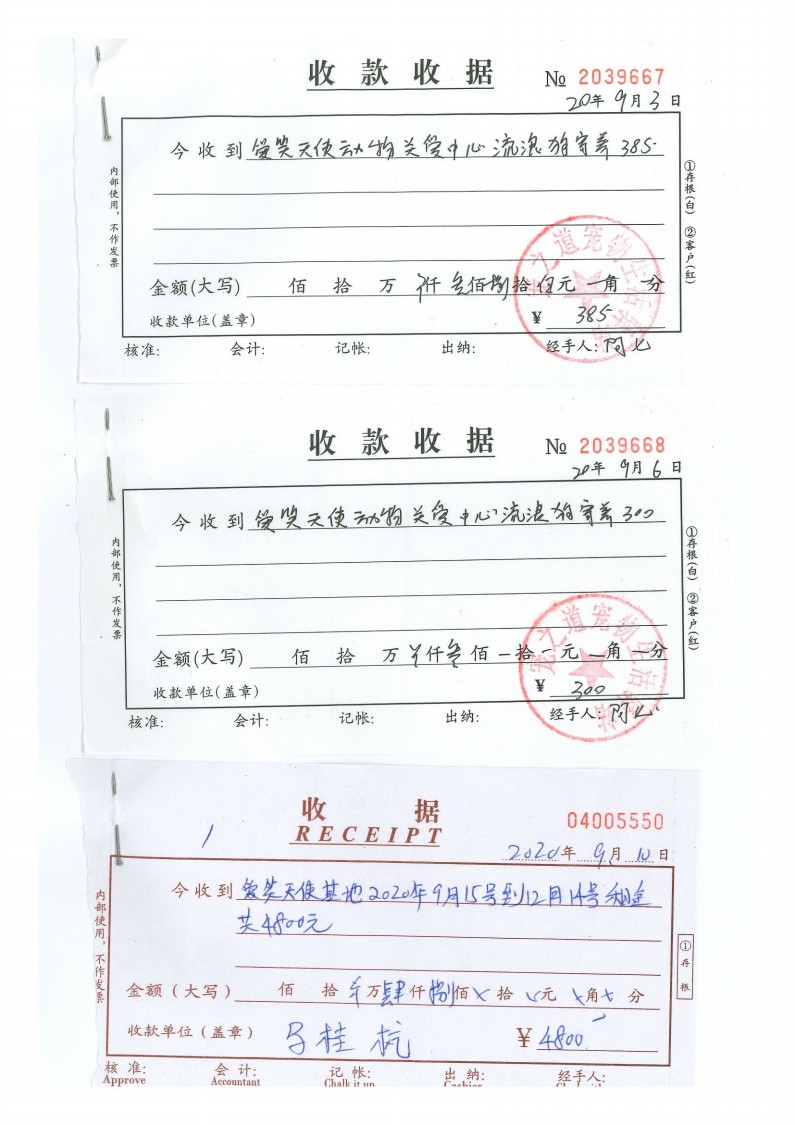 收款收据 № 2039667
20年9月3日
今收到 爱笑天使动物关爱中心流浪狗寄养385
金额(大写) 佰 拾 万 ¥仟叁佰捌拾伍元一角一分
收款单位(盖章) ¥ 385
核准: 会计: 记帐: 出纳: 经手人:
内部使用,不作发票
①存根(白) ②客户(红)
宠之道宠物生活
收款收据 № 2039668
20年9月6日
今收到 爱笑天使动物关爱中心流浪狗寄养300
金额(大写) 佰 拾 万 ¥仟叁佰一拾一元一角一分
收款单位(盖章) ¥ 300
核准: 会计: 记帐: 出纳: 经手人:
内部使用,不作发票
①存根(白) ②客户(红)
宠之道宠物生活
收 据 04005550
RECEIPT
2020年9月10日
今收到 爱笑天使基地2020年9月15号到12月14号租金
共4800元
金额(大写) 佰 拾 ¥万肆仟捌佰x拾x元x角x分
收款单位(盖章) 桂 ¥ 4800
内部使用,不作发票
①存根
核准: 会计: 记帐: 出纳: 经手人:
Approve Accountant Chalk it up Cashier